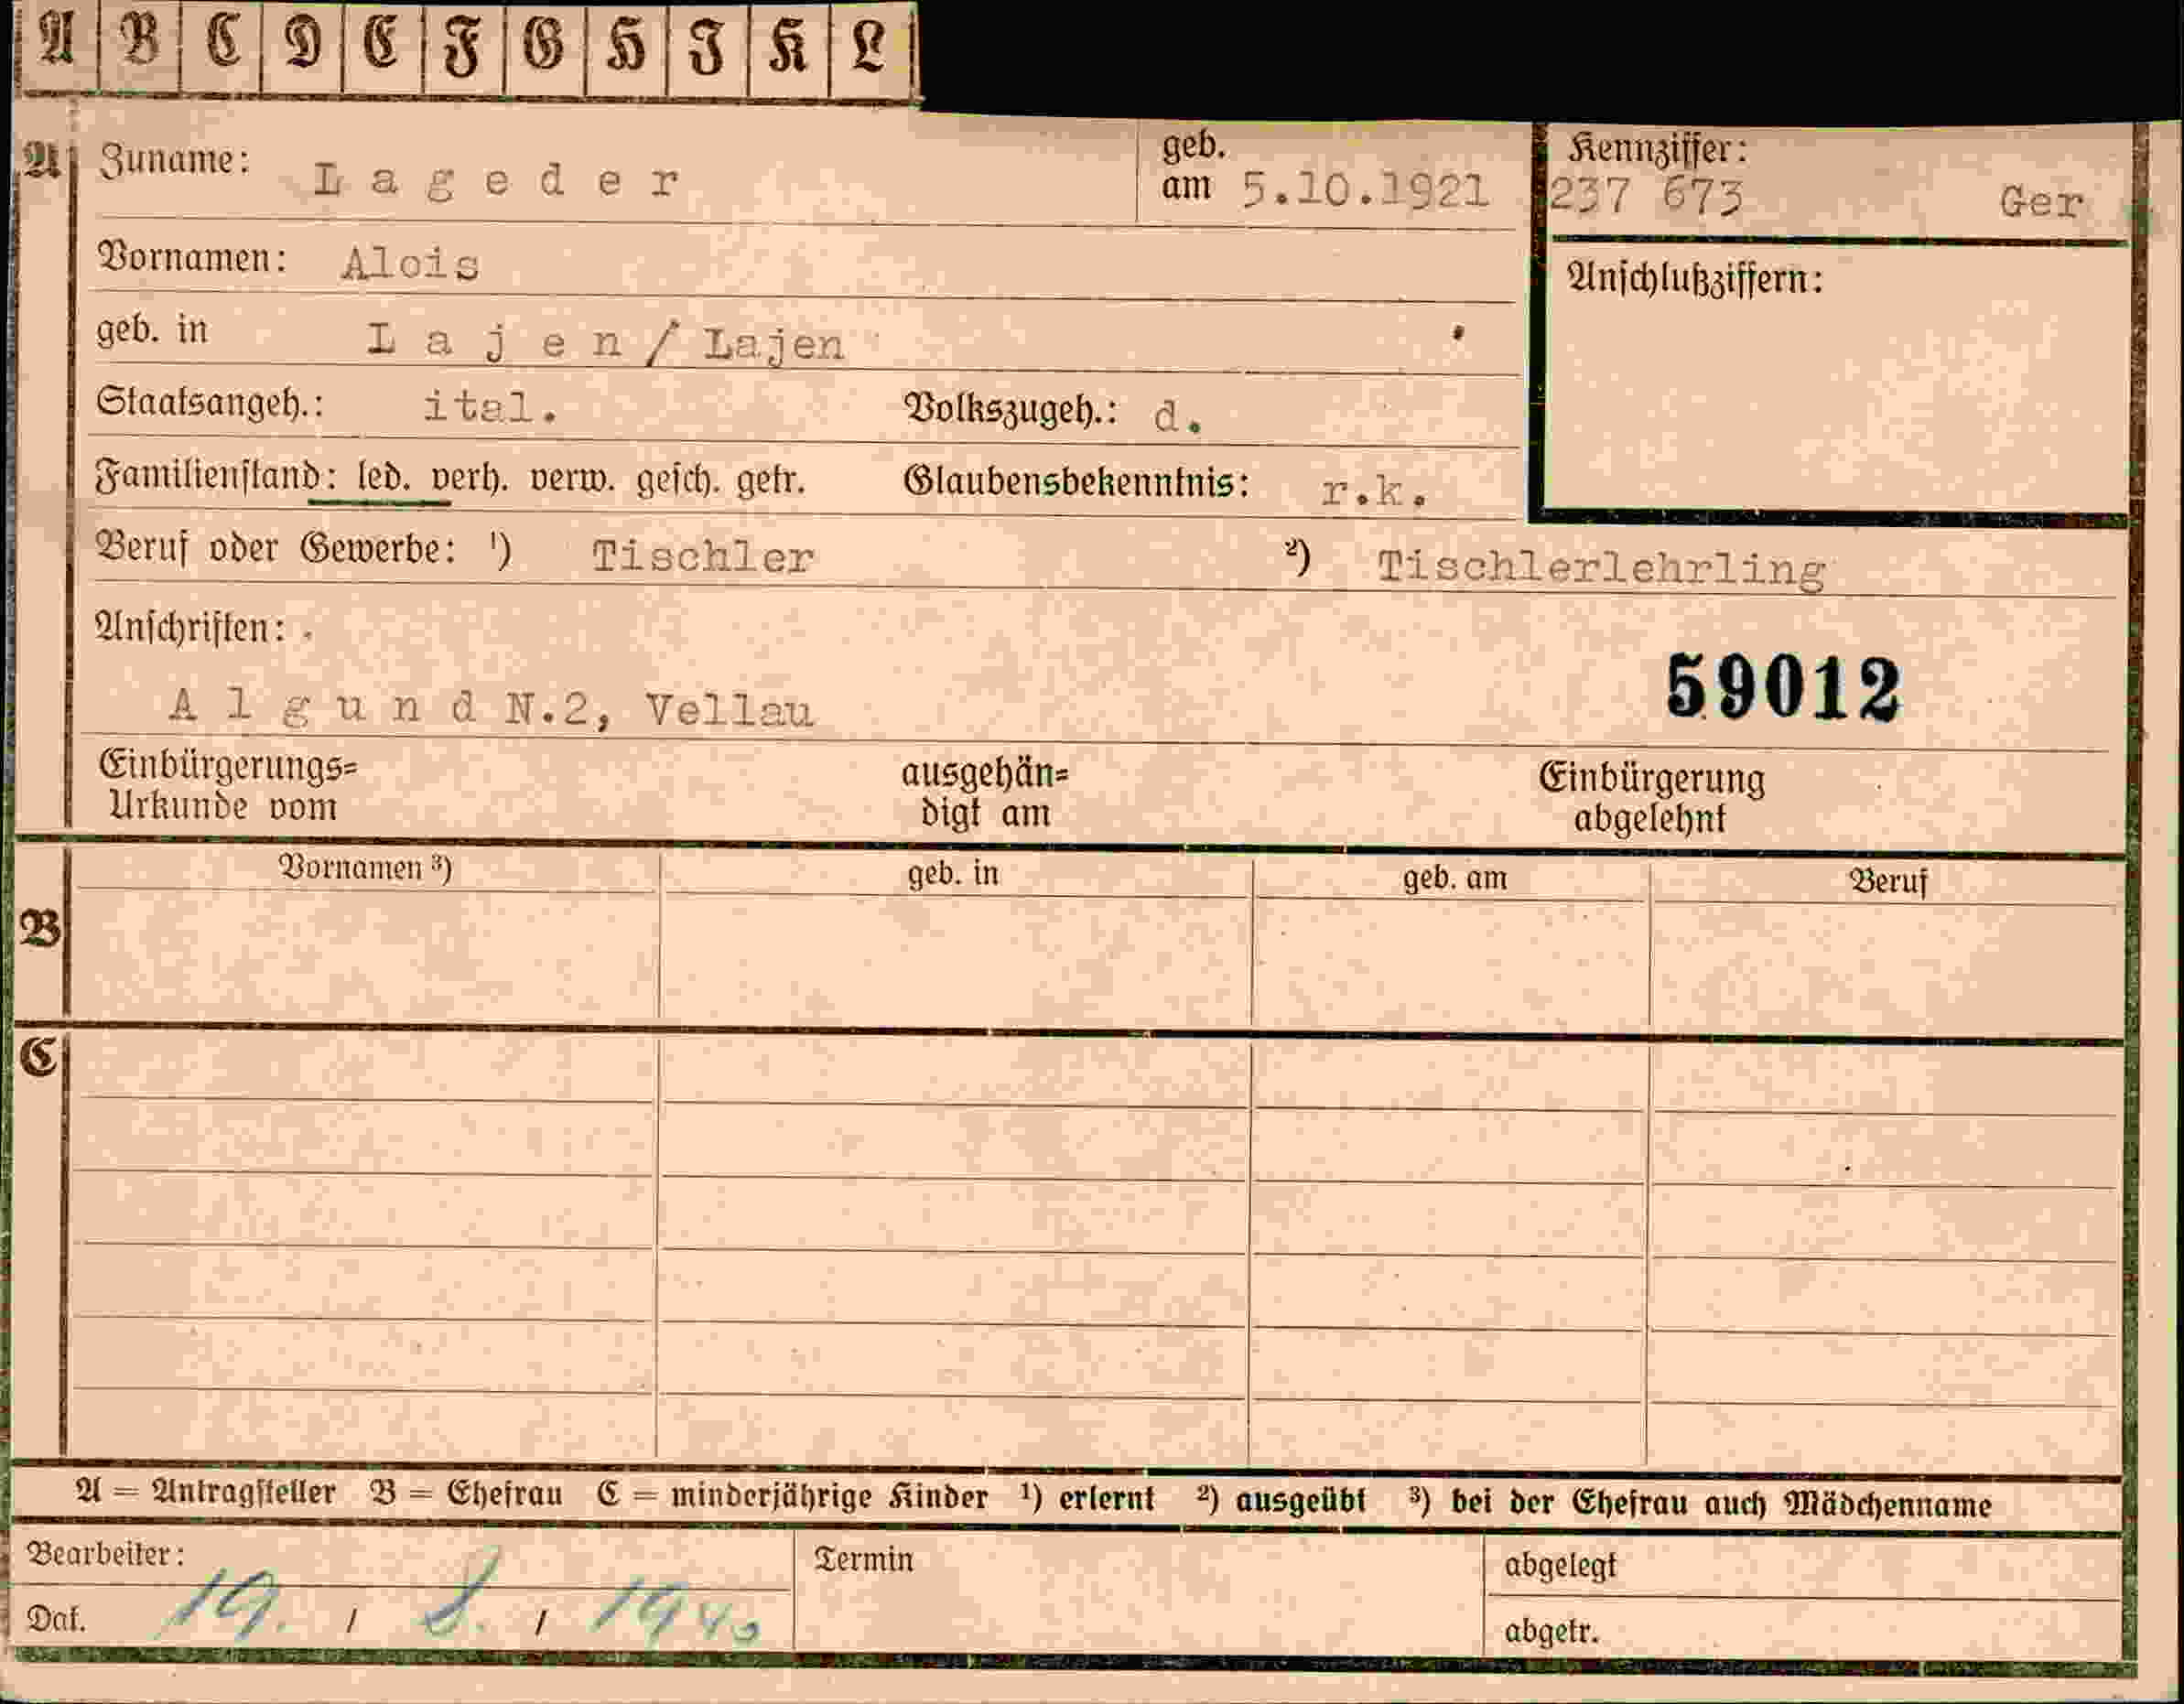 A B C D E F G H I K L
A Zuname: L a g e d e r geb. am 5.10.1921 Kennziffer: 237 673 Ger
Vornamen: Alois Anschlußziffern:
geb. in L a j e n / Lajen
Staatsangeh.: ital. Volkszugeh.: d.
Familienstand: led. verh. verw. gesch. getr. Glaubensbekenntnis: r.k.
Beruf oder Gewerbe: ¹) Tischler ²) Tischlerlehrling
Anschriften:
59012
A l g u n d N.2, Vellau
Einbürgerungs= ausgehän= Einbürgerung
Urkunde vom digt am abgelehnt
Vornamen ³) geb. in geb. am Beruf
B
C
A = Antragsteller B = Ehefrau C = minderjährige Kinder ¹) erlernt ²) ausgeübt ³) bei der Ehefrau auch Mädchenname
Bearbeiter: Termin abgelegt
Dat. 19. / 8. / 1940 abgetr.